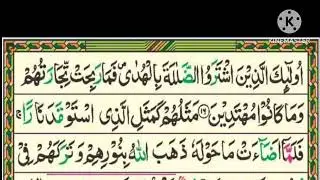 اُولٰٓئِكَ الَّذِيْنَ اشْتَرَوُا الضَّلٰلَةَ بِالْهُدٰى فَمَا رَبِحَتْ تِّجَارَتُهُمْ
وَمَا كَانُوْا مُهْتَدِيْنَ ﴿۱۶﴾ مَثَلُهُمْ كَمَثَلِ الَّذِى اسْتَوْقَدَ نَارًا
فَلَمَّآ اَضَآءَتْ مَا حَوْلَهٗ ذَهَبَ اللّٰهُ بِنُوْرِهِمْ وَتَرَكَهُمْ فِىْ